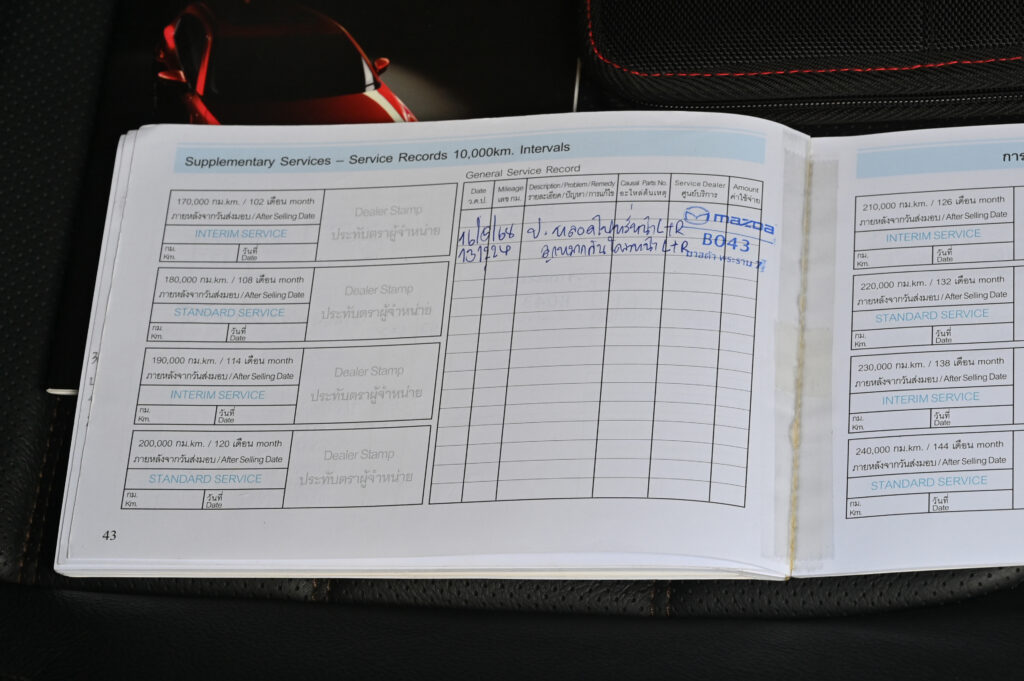 Supplementary Services – Service Records 10,000km. Intervals
170,000 กม.km. / 102 เดือน month
ภายหลังจากวันส่งมอบ / After Selling Date
INTERIM SERVICE
กม.
Km.
วันที่
Date
Dealer Stamp
ประทับตราผู้จำหน่าย
180,000 กม.km. / 108 เดือน month
ภายหลังจากวันส่งมอบ / After Selling Date
STANDARD SERVICE
กม.
Km.
วันที่
Date
Dealer Stamp
ประทับตราผู้จำหน่าย
190,000 กม.km. / 114 เดือน month
ภายหลังจากวันส่งมอบ / After Selling Date
INTERIM SERVICE
กม.
Km.
วันที่
Date
Dealer Stamp
ประทับตราผู้จำหน่าย
200,000 กม.km. / 120 เดือน month
ภายหลังจากวันส่งมอบ / After Selling Date
STANDARD SERVICE
กม.
Km.
วันที่
Date
Dealer Stamp
ประทับตราผู้จำหน่าย
43
General Service Record
Date
ว.ด.ป.
Mileage
เลข กม.
Description / Problem / Remedy
รายละเอียด / ปัญหา / การแก้ไข
Causal Parts No.
อะไหล่ต้นเหตุ
Service Dealer
ศูนย์บริการ
Amount
ค่าใช้จ่าย
16/9/66 ป. หลอดไฟหรี่หน้า L+R
L+R
mazda
B043
การ
210,000 กม.km. / 126 เดือน month
ภายหลังจากวันส่งมอบ / After Selling Date
INTERIM SERVICE
กม.
Km.
วันที่
Date
220,000 กม.km. / 132 เดือน month
ภายหลังจากวันส่งมอบ / After Selling Date
STANDARD SERVICE
กม.
Km.
วันที่
Date
230,000 กม.km. / 138 เดือน month
ภายหลังจากวันส่งมอบ / After Selling Date
INTERIM SERVICE
กม.
Km.
วันที่
Date
240,000 กม.km. / 144 เดือน month
ภายหลังจากวันส่งมอบ / After Selling Date
STANDARD SERVICE
กม.
Km.
วันที่
Date